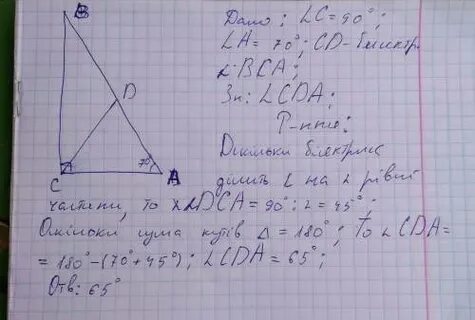 В
Дано: ∠C=90°;
∠A=70°; CD-бісектр.
∠BCA;
D
Зн: ∠CDA;
Р-ння:
Оскільки бісектриса
70°
C
A
ділить ∠ на 2 рівні
частини, то ∠DCA=90°:2=45°
Оскільки сума кутів Δ=180°; то ∠CDA=
=180°-(70°+45°); ∠CDA=65°;
Отв: 65°